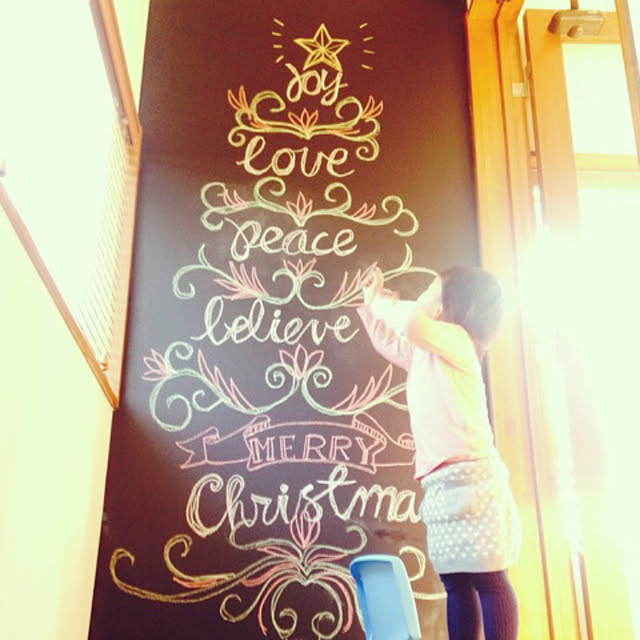 Joy
love
peace
believe
MERRY
Christma